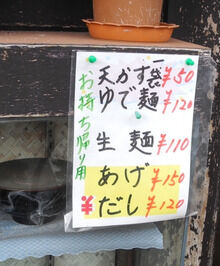 お持ち帰り用
天かす一袋¥50
ゆで麺¥120
生麺¥110
あげ¥150
¥だし¥120